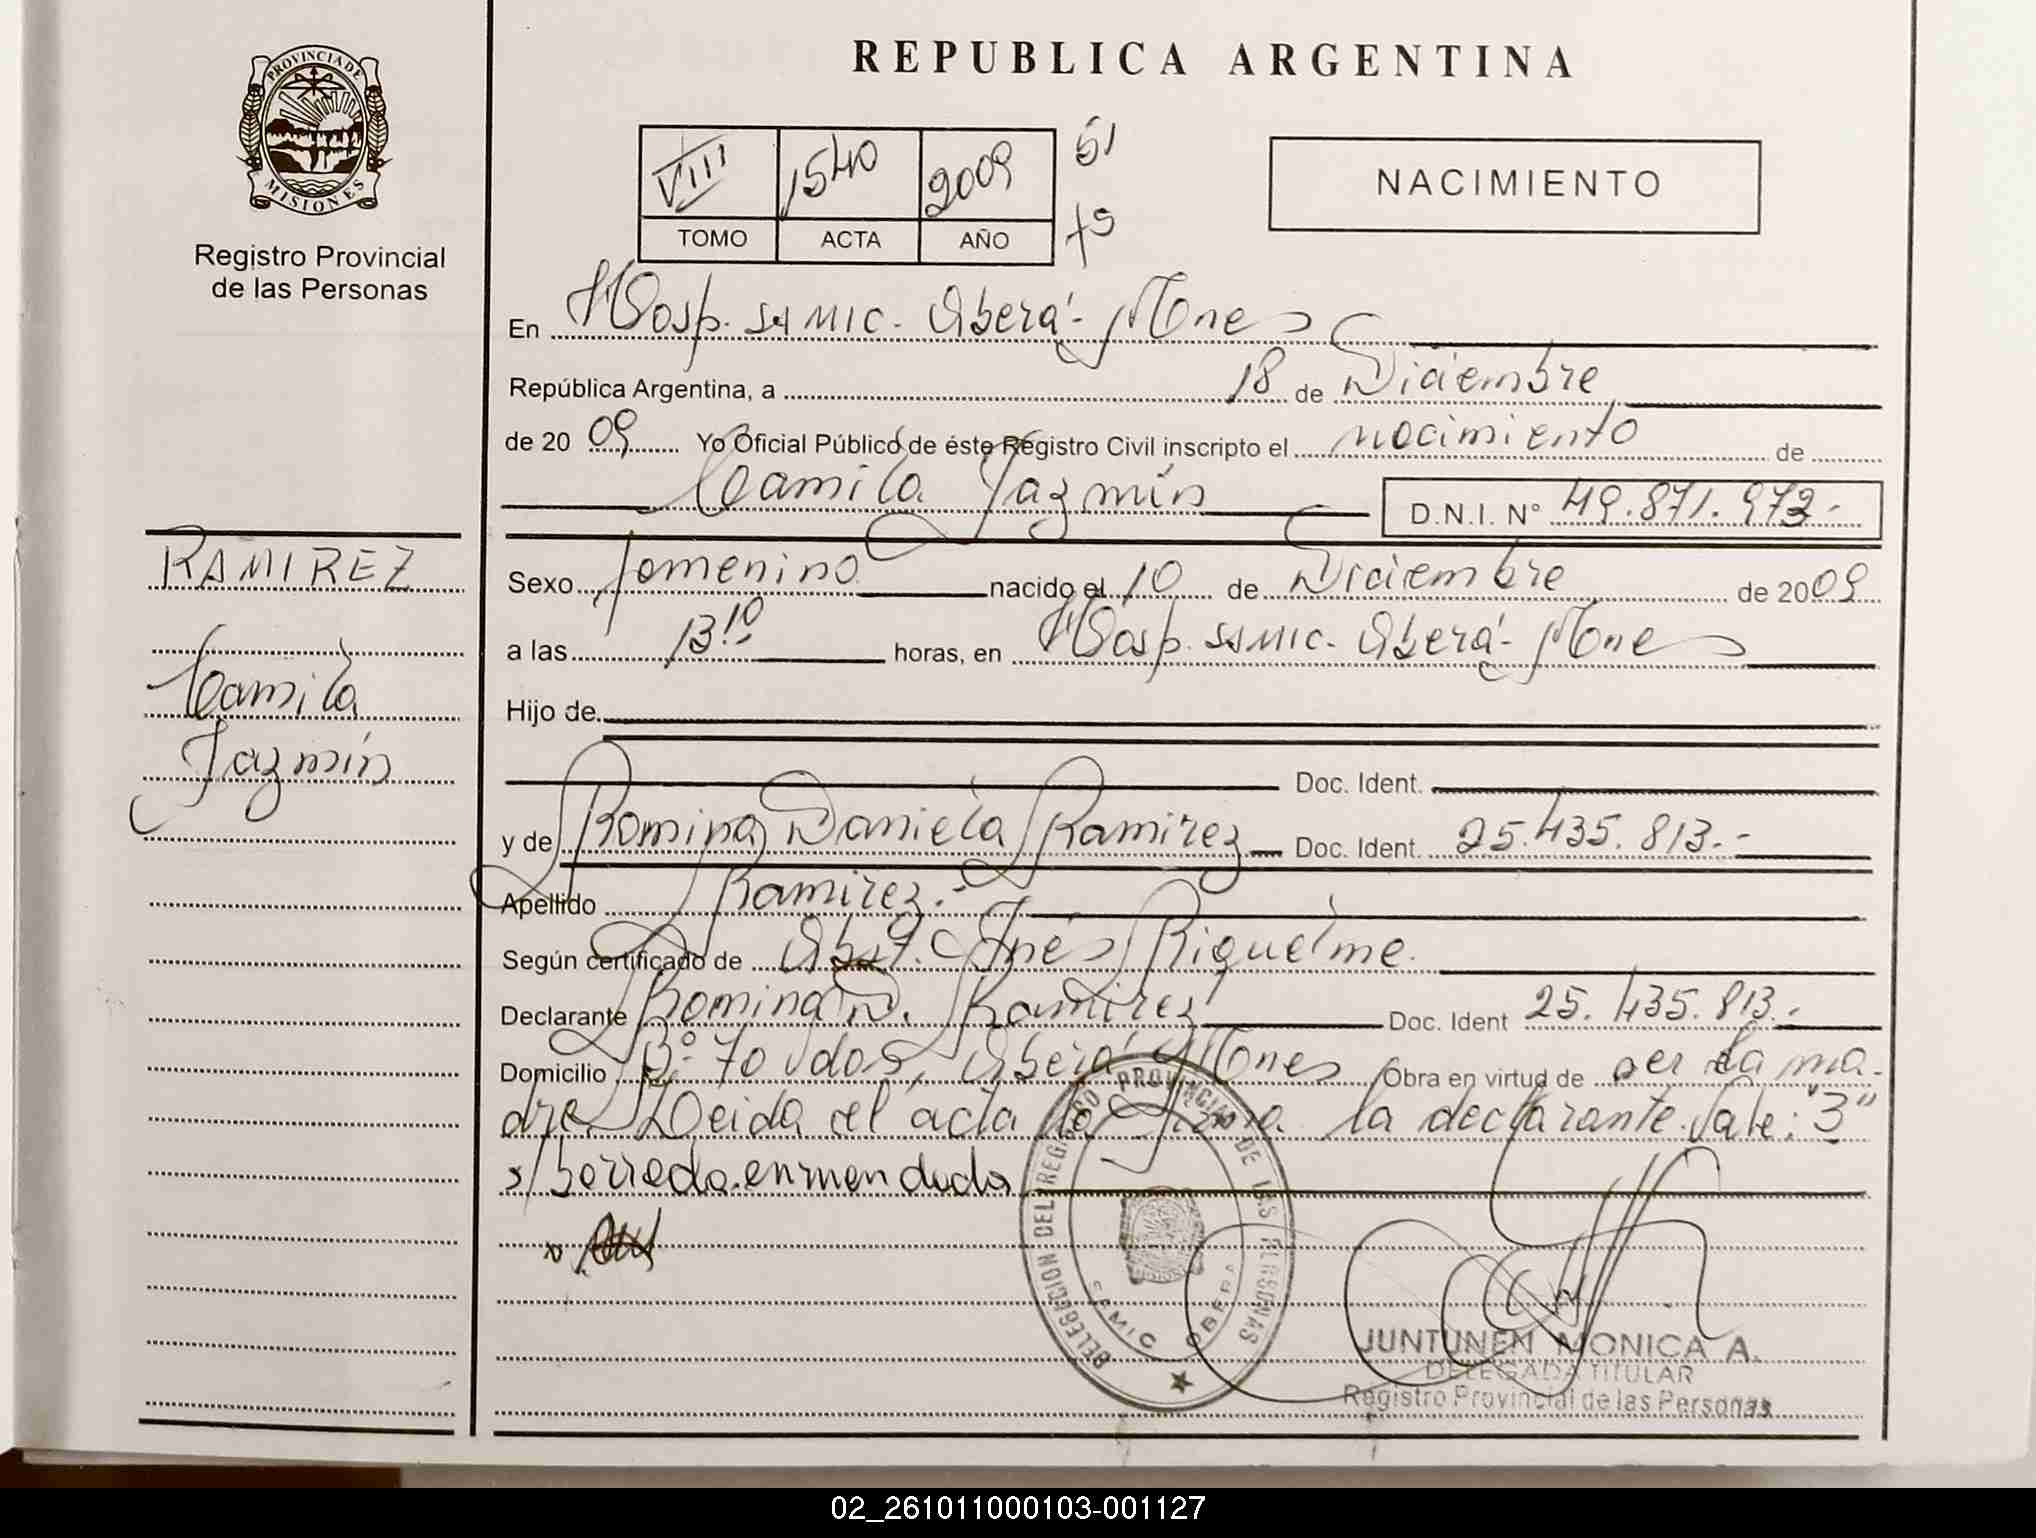 REPUBLICA ARGENTINA
PROVINCIA DE
MISIONES
Registro Provincial
de las Personas
VIII 1540 2009 51
TOMO ACTA AÑO
NACIMIENTO
En Hosp. SAMIC. Oberá - Mnes
República Argentina, a 18 de Diciembre
de 20 09 Yo Oficial Público de éste Registro Civil inscripto el nacimiento de
Camila Jazmín D.N.I. N° 49.871.973.-
RAMIREZ
Camila
Jazmín
Sexo femenino nacido el 10 de Diciembre de 2009
a las 13:10 horas, en Hosp. SAMIC. Oberá - Mnes
Hijo de
Doc. Ident.
y de Romina Daniela Ramirez Doc. Ident. 25.435.813.-
Apellido Ramirez.-
Según certificado de Obst. Inés Riquelme.
Declarante Romina D. Ramirez Doc. Ident 25.435.813.-
Domicilio B° 70 Vdas, Oberá Mnes Obra en virtud de ser la ma-
dre. Leida el acta la firma la declarante. Vale: "3"
s/borrado. enmendado
DELEGACION DEL REGISTRO PROVINCIAL DE LAS PERSONAS
SAMIC OBERA
JUNTUNEN MONICA A.
DELEGADA TITULAR
Registro Provincial de las Personas
02_261011000103-001127